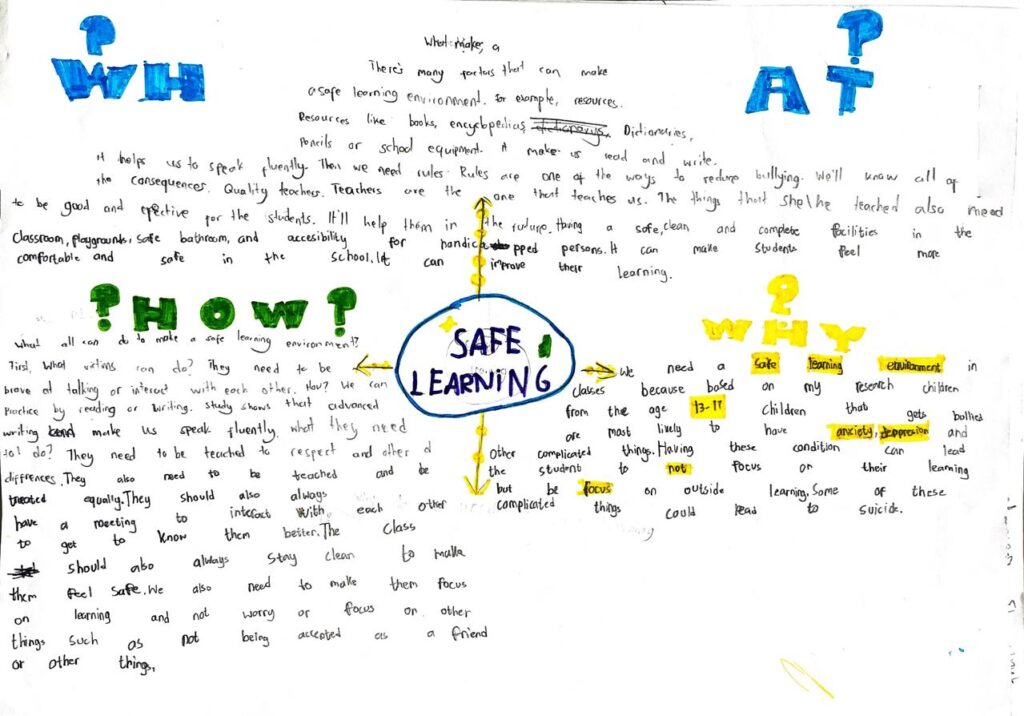 ? ?
WH AT
What makes a
There's many factors that can make
a safe learning environment. for example, resources.
Resources like books, encyclopedias, Dictionaries,
Pencils or school equipment. It make us read and write.
It helps us to speak fluently. Then we need rules. Rules are one of the ways to reduce bullying. We'll know all of
the consequences. Quality teachers. Teachers are the one that teaches us. The things that she/he teached also need
to be good and effective for the students. It'll help them in the future. Having a safe, clean and complete facilities in the
Classroom, playgrounds, safe bathroom, and accesibility for handicapped persons. It can make students feel more
comfortable and safe in the school. It can improve their learning.
? HOW?
What all can do to make a safe learning environment?
First, What victims can do? They need to be
brave at talking or interact with each other. How? We can
Practice by reading or writing. Study shows that advanced
writing make us speak fluently. what they need
to do? They need to be teached to respect and other
differences. They also need to be teached and be
treated equally. They should also always
have a meeting to interact with each other
to get to know them better. The class
should also always stay clean to make
them feel safe. We also need to make them focus
on learning and not worry or focus on other
things such as not being accepted as a friend
or other things.
SAFE
LEARNING
?
WHY
We need a safe learning in
classes because based on my research children
from the age 13-17 Children that gets bullied
are most likely to have anxiety, and
Other complicated things. Having these condition can lead
the student to not focus on their learning
but be focus on outside learning. Some of these
complicated things could lead to suicide.